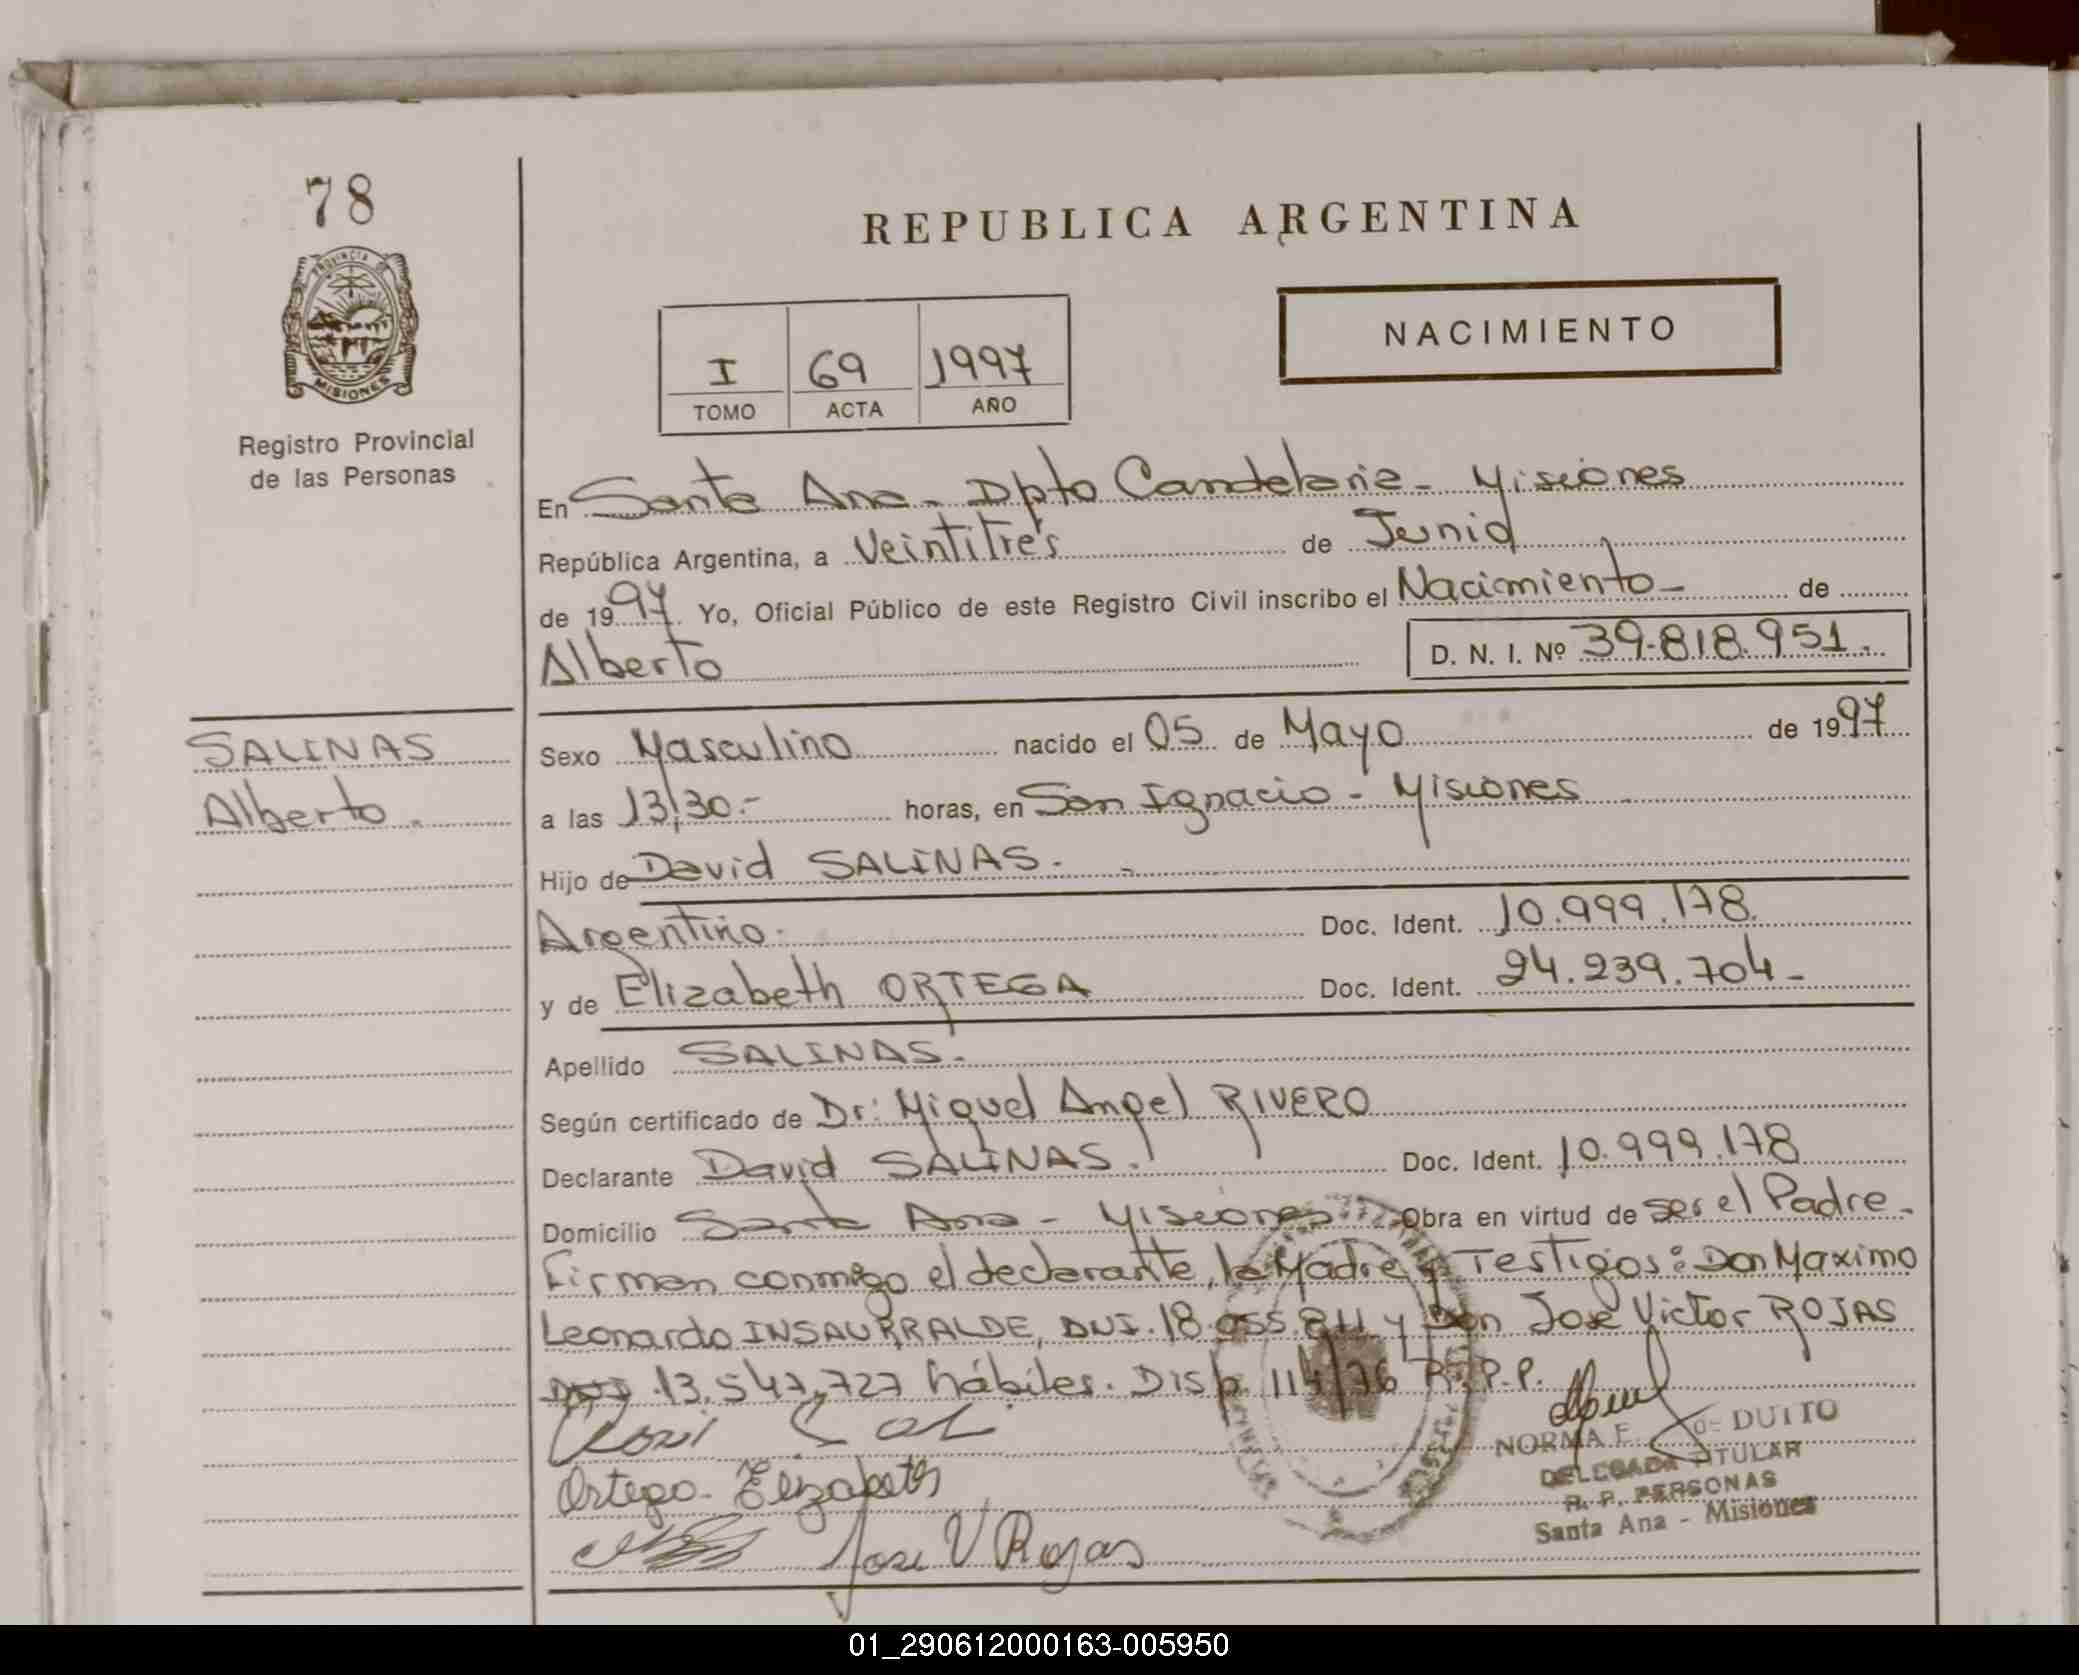 78
REPUBLICA ARGENTINA
PROVINCIA DE
MISIONES
NACIMIENTO
I 69 1997
TOMO ACTA AÑO
Registro Provincial
de las Personas
En Santa Ana - Dpto Candelaria - Misiones
República Argentina, a Veintitrés de Junio
de 1997 Yo, Oficial Público de este Registro Civil inscribo el Nacimiento - de
Alberto D. N. I. Nº 39.818.951.
SALINAS
Alberto.
Sexo Masculino nacido el 05 de Mayo de 1997
a las 13,30.- horas, en San Ignacio - Misiones
Hijo de David SALINAS.
Argentino. Doc. Ident. 10.999.178.
y de Elizabeth ORTEGA Doc. Ident. 24.239.704-
Apellido SALINAS.
Según certificado de Dr: Miguel Angel RIVERO
Declarante David SALINAS. Doc. Ident. 10.999.178
Domicilio Santa Ana - Misiones Obra en virtud de ser el Padre.
Firman conmigo el declarante, la Madre y Testigos: Don Maximo
Leonardo INSAURRALDE, DNI. 18.055.811 y Don José Victor ROJAS
DNI .13.547.727 hábiles. Disp. 114/76 R.P.P.
NORMA F. DE DUTTO
DELEGADA TITULAR
R. P. PERSONAS
Santa Ana - Misiones
Ortega. Elizabeth
Jose V Rojas
01_290612000163-005950